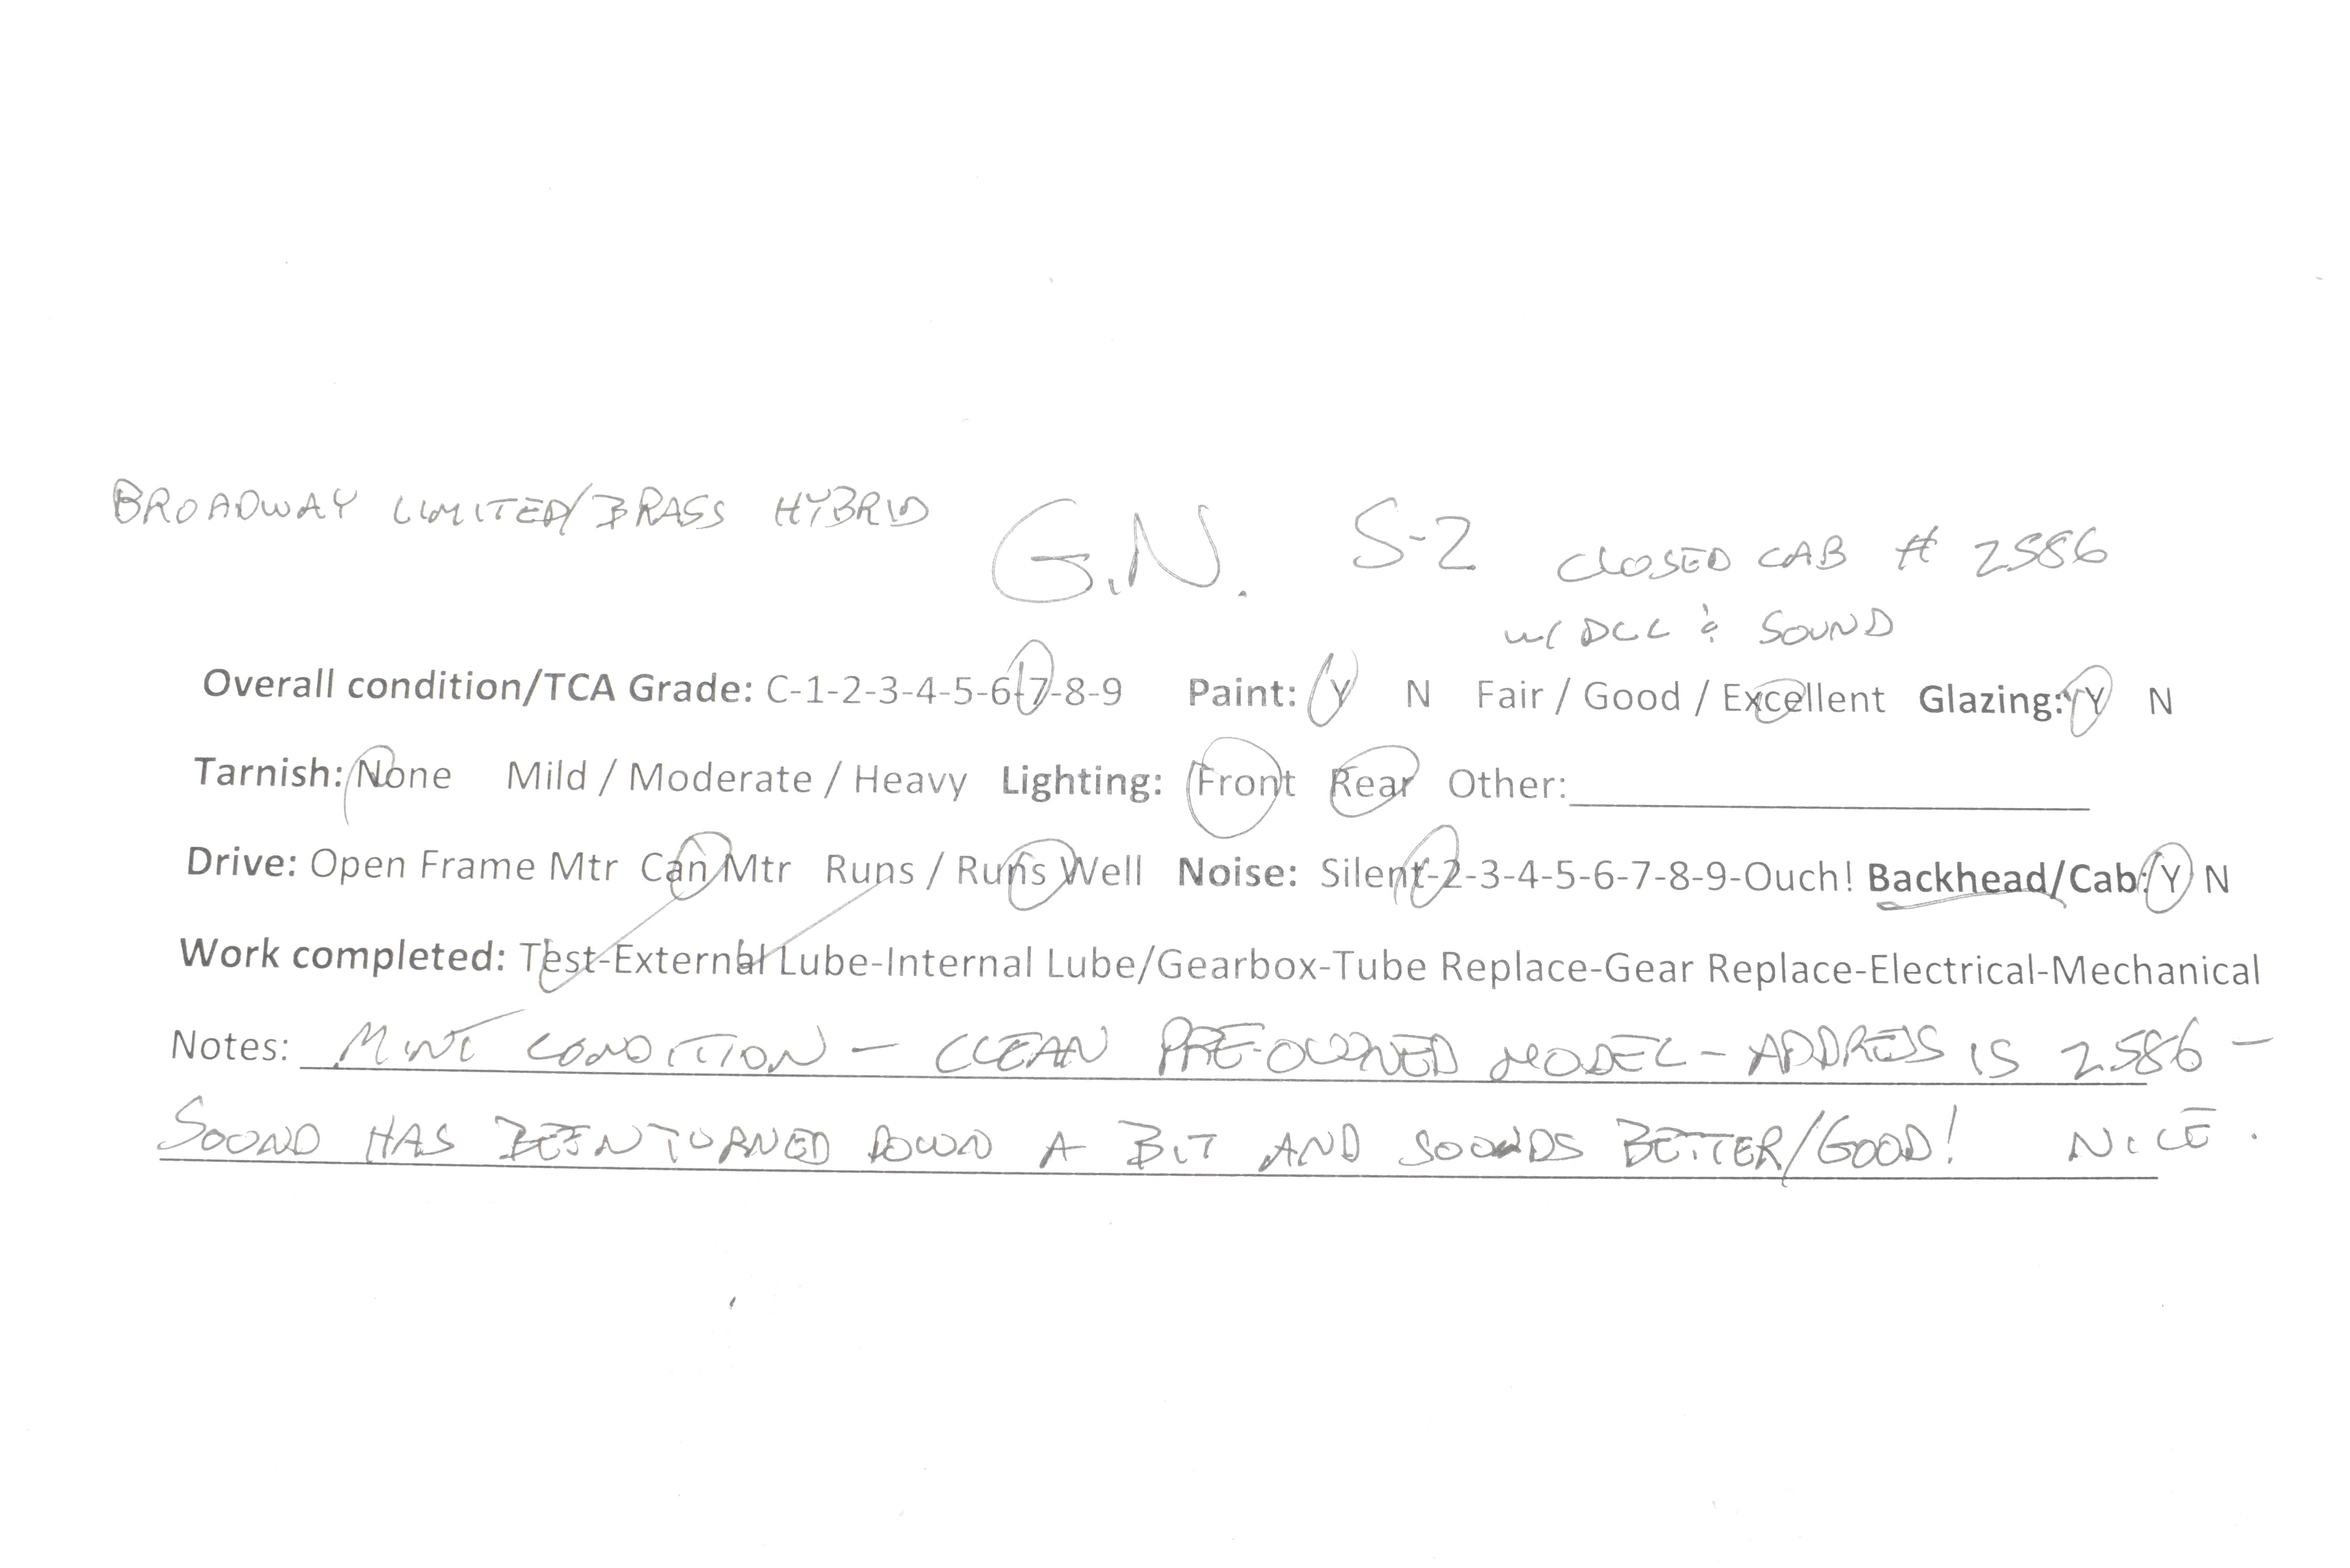 BROADWAY LIMITED/BRASS HYBRID G.N. S-2 CLOSED CAB # 2586
w/ DCC & SOUND
Overall condition/TCA Grade: C-1-2-3-4-5-6-7-8-9 Paint: Y N Fair / Good / Excellent Glazing: Y N
Tarnish: None Mild / Moderate / Heavy Lighting: Front Rear Other:
Drive: Open Frame Mtr Can Mtr Runs / Runs Well Noise: Silent-2-3-4-5-6-7-8-9-Ouch! Backhead/Cab: Y N
Work completed: Test-External Lube-Internal Lube/Gearbox-Tube Replace-Gear Replace-Electrical-Mechanical
Notes: MINT CONDITION - CLEAN PRE-OWNED MODEL - ADDRESS IS 2586 -
SOUND HAS BEEN TURNED DOWN A BIT AND SOUNDS BETTER/GOOD! NICE.